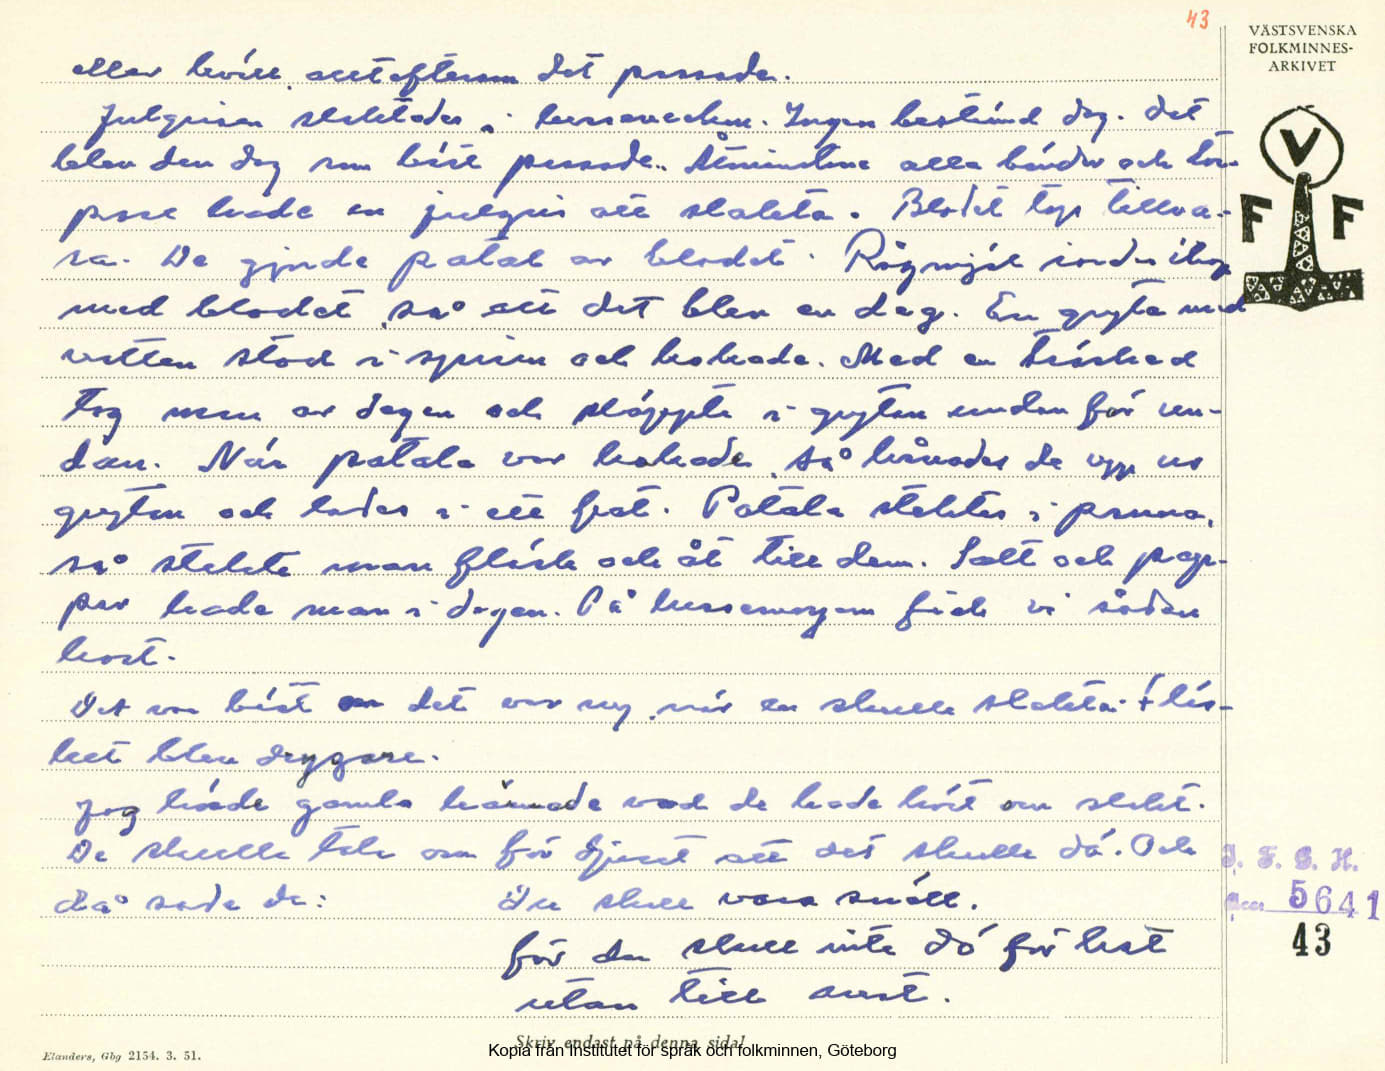 43
VÄSTSVENSKA
FOLKMINNES-
ARKIVET
V
F F
eller kväll, allt eftersom det passade.
Julgrisen slaktades i lusseveckan. Ingen bestämd dag. Det
blev den dag som bäst passade. Åtminstone alla bönder och tor-
pare hade en julgris att slakta. Blodet togs tillva-
ra. De gjorde palat av blodet. Rågmjöl rördes ihop
med blodet, så att det blev en deg. En gryta med
vatten stod i spisen och kokade. Med en träsked
tog man av degen och släppte i grytan undan för un-
dan. När palala var kokade, så hånades de upp ur
grytan och lades i ett fat. Palala stektes i panna,
så stekte man fläsk och åt till dem. Salt och pep-
par hade man i degen. På lussemorgon fick vi sådan
kost.
Det var bäst om det var ny, när en skulle slakta. Fläs-
ket blev drygare.
Jag hörde gamla härmade vad de hade hört om slakt.
De skulle tala om för djuret att det skulle dö. Och
då sade de: Du skall vara snäll.
för du skall inte dö för last
utan till aust.
I. F. G. H.
Acc. 5641
43
Skriv endast på denna sida!
Elanders, Gbg 2154. 3. 51.
Kopia från Institutet för språk och folkminnen, Göteborg